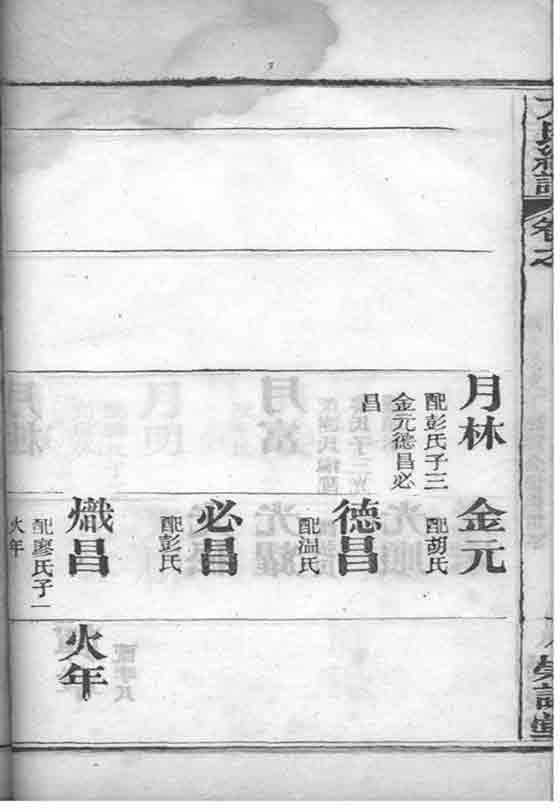 月林
配彭氏子三
金元德昌必
昌
金元
配胡氏
德昌
配温氏
必昌
配彭氏
熾昌
配廖氏子一
火年
火年